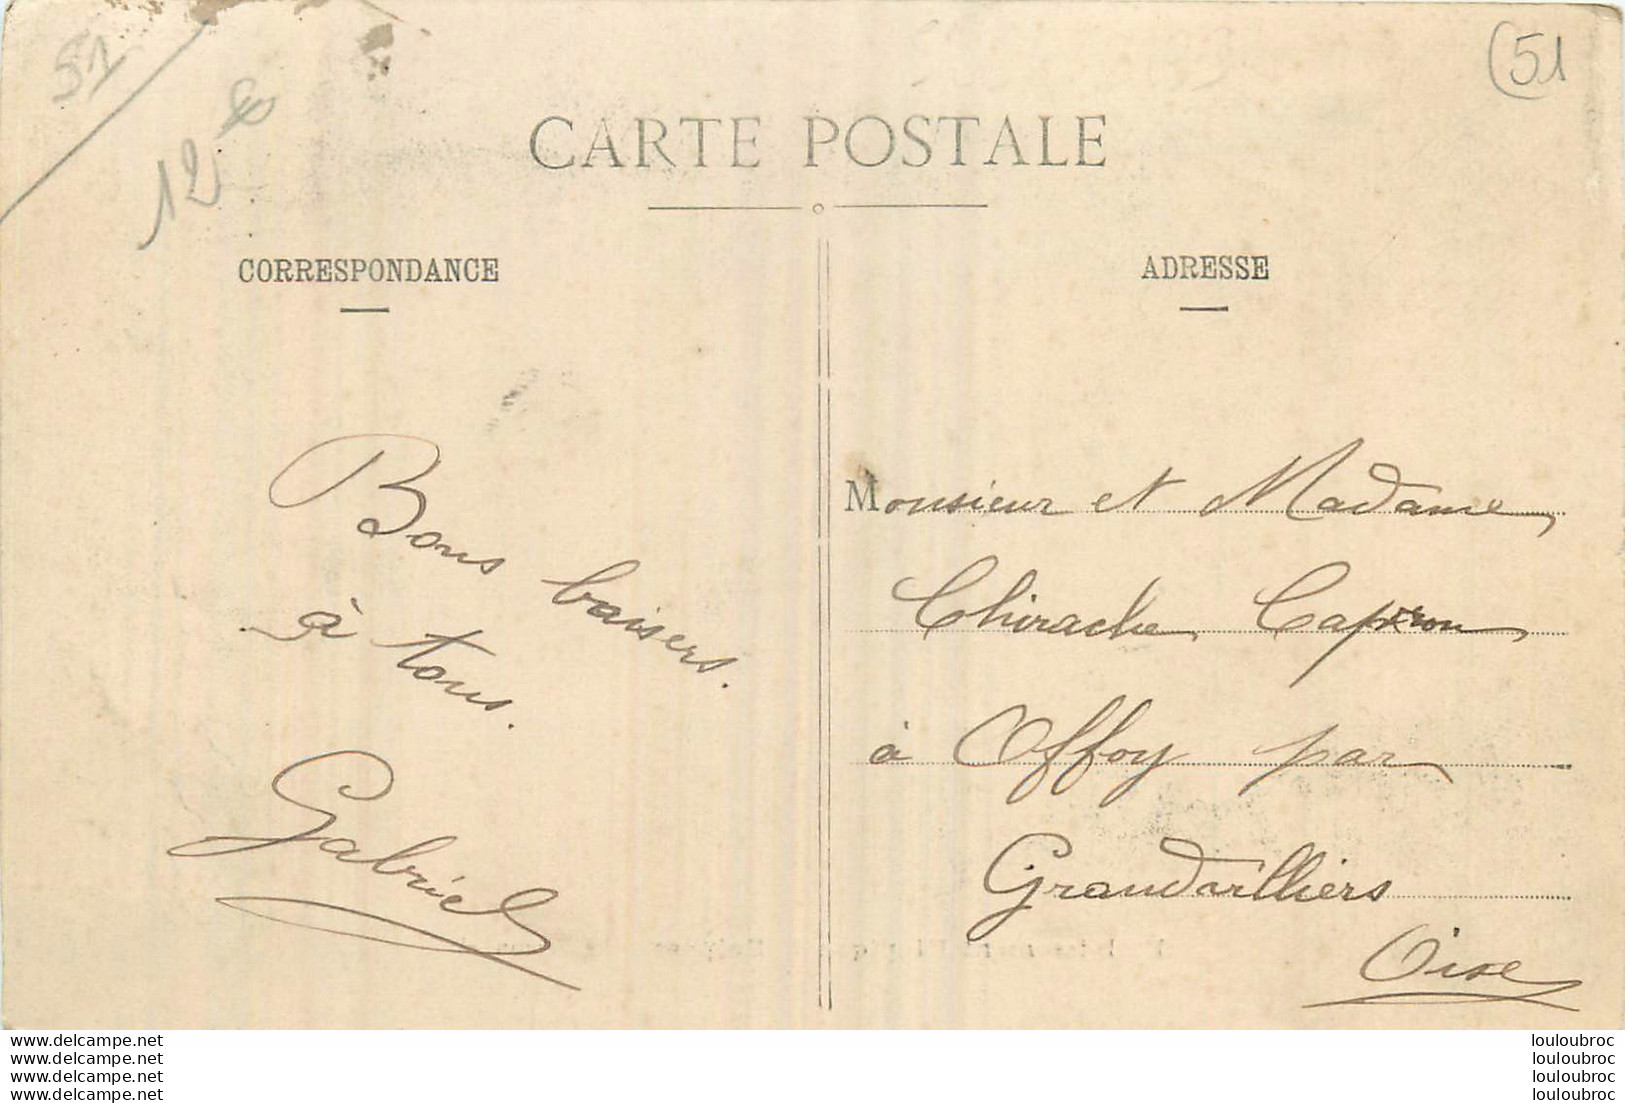 51
12 €
(51
CARTE POSTALE
CORRESPONDANCE
ADRESSE
Bons baisers.
à tous.
Gabriel
Monsieur et Madame
Chirache Capron
à Offoy par
Grandvilliers
Oise
www.delcampe.net
www.delcampe.net
www.delcampe.net
www.delcampe.net
louloubroc
louloubroc
louloubroc
louloubroc